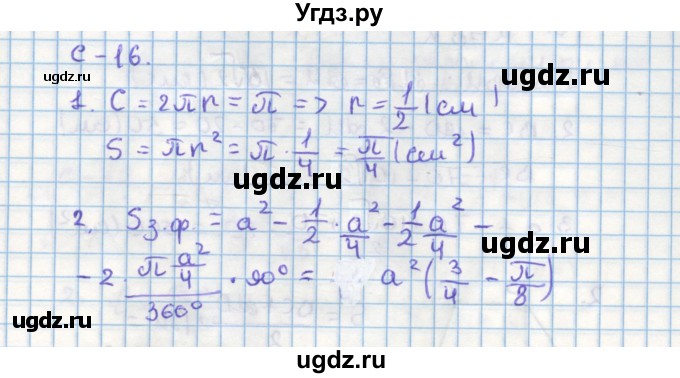 Угдз.ру
ugdz.ru
ugdz.ru
С-16.
1. C = 2πr = π => r = 1/2 (см)
ugdz.ru
S = πr² = π · 1/4 = π/4 (см²)
ugdz.ru
2. Sз.ф. = a² - 1/2 · a²/4 - 1/2 a²/4 -
ugdz.ru
- 2 · (π a²/4)/360° · 90° = a² (3/4 - π/8)
ugdz.ru
ugdz.ru
ugdz.ru